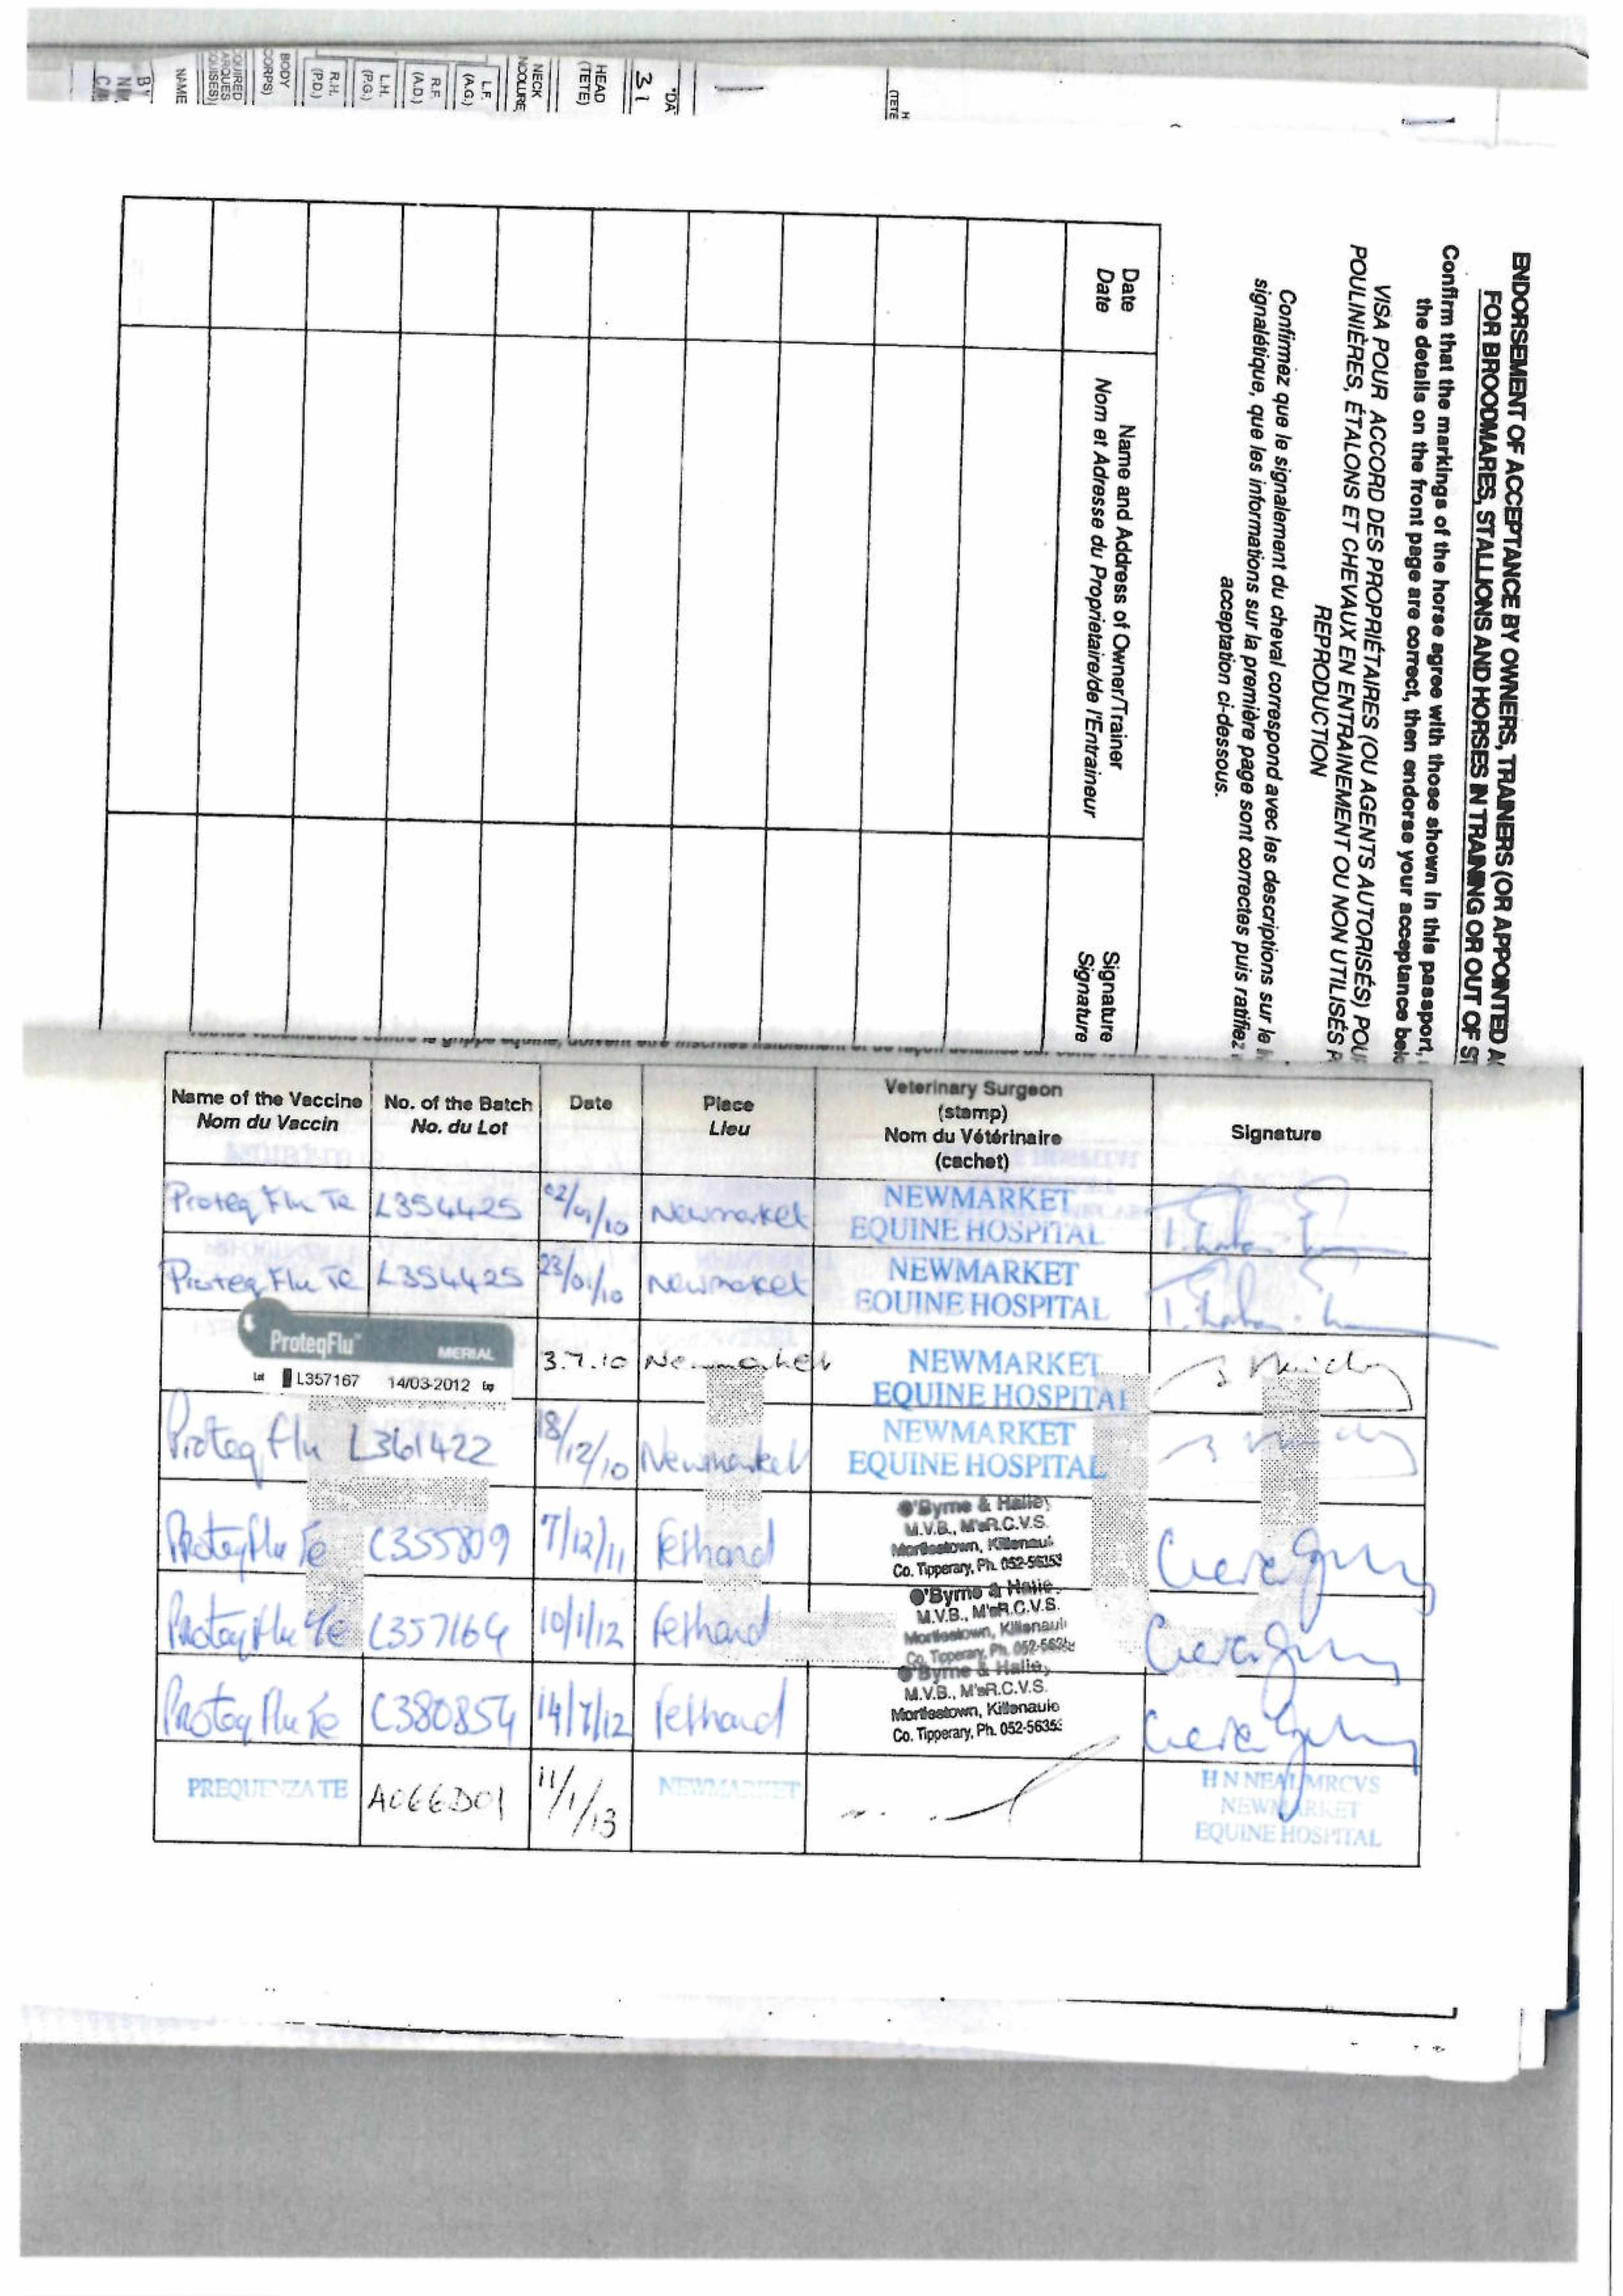 BODY
CORPS)
NAME
R.H.
(P.D.)
L.H.
(P.G.)
R.F.
(A.D.)
L.F.
(A.G.)
NECK
HEAD
(TETE)
31
ENDORSEMENT OF ACCEPTANCE BY OWNERS, TRAINERS (OR APPOINTED A
FOR BROODMARES, STALLIONS AND HORSES IN TRAINING OR OUT OF S
Confirm that the markings of the horse agree with those shown in this passport,
the details on the front page are correct, then endorse your acceptance belo
VISA POUR ACCORD DES PROPRIÉTAIRES (OU AGENTS AUTORISÉS) POU
POULINIÈRES, ÉTALONS ET CHEVAUX EN ENTRAINEMENT OU NON UTILISÉS P
REPRODUCTION
Confirmez que le signalement du cheval correspond avec les descriptions sur le
signalétique, que les informations sur la première page sont correctes puis ratifiez
acceptation ci-dessous.
Date
Date
Name and Address of Owner/Trainer
Nom et Adresse du Proprietaire/de l'Entraineur
Signature
Signature
Name of the Vaccine
Nom du Vaccin
No. of the Batch
No. du Lot
Date
Place
Lieu
Veterinary Surgeon
(stamp)
Nom du Vétérinaire
(cachet)
Signature
Proteq Flu Te L354425 02/01/10 Newmarket NEWMARKET
EQUINE HOSPITAL
Proteq Flu Te L354425 23/01/10 Newmarket NEWMARKET
EQUINE HOSPITAL
ProteqFlu™ MERIAL
Lot L357167 14/03-2012 Exp
3.7.10 Newmarket NEWMARKET
EQUINE HOSPITAL
Proteq Flu L361422 18/12/10 Newmarket NEWMARKET
EQUINE HOSPITAL
Proteq Flu Te L355809 7/12/11 Fethard
O'Byrne & Halley
M.V.B., M'sR.C.V.S.
Mortlestown, Killenaule
Co. Tipperary, Ph. 052-56353
Proteq Flu Te L357164 10/1/12 Fethard
O'Byrne & Halley
M.V.B., M'sR.C.V.S.
Mortlestown, Killenaule
Co. Tipperary, Ph. 052-5635
Proteq Flu Te L380854 14/7/12 Fethard
O'Byrne & Halley
M.V.B., M'sR.C.V.S.
Mortlestown, Killenaule
Co. Tipperary, Ph. 052-5635
PREQUENZA TE A066D01 11/1/13 NEWMARKET
H N NEAL MRCVS
NEWMARKET
EQUINE HOSPITAL